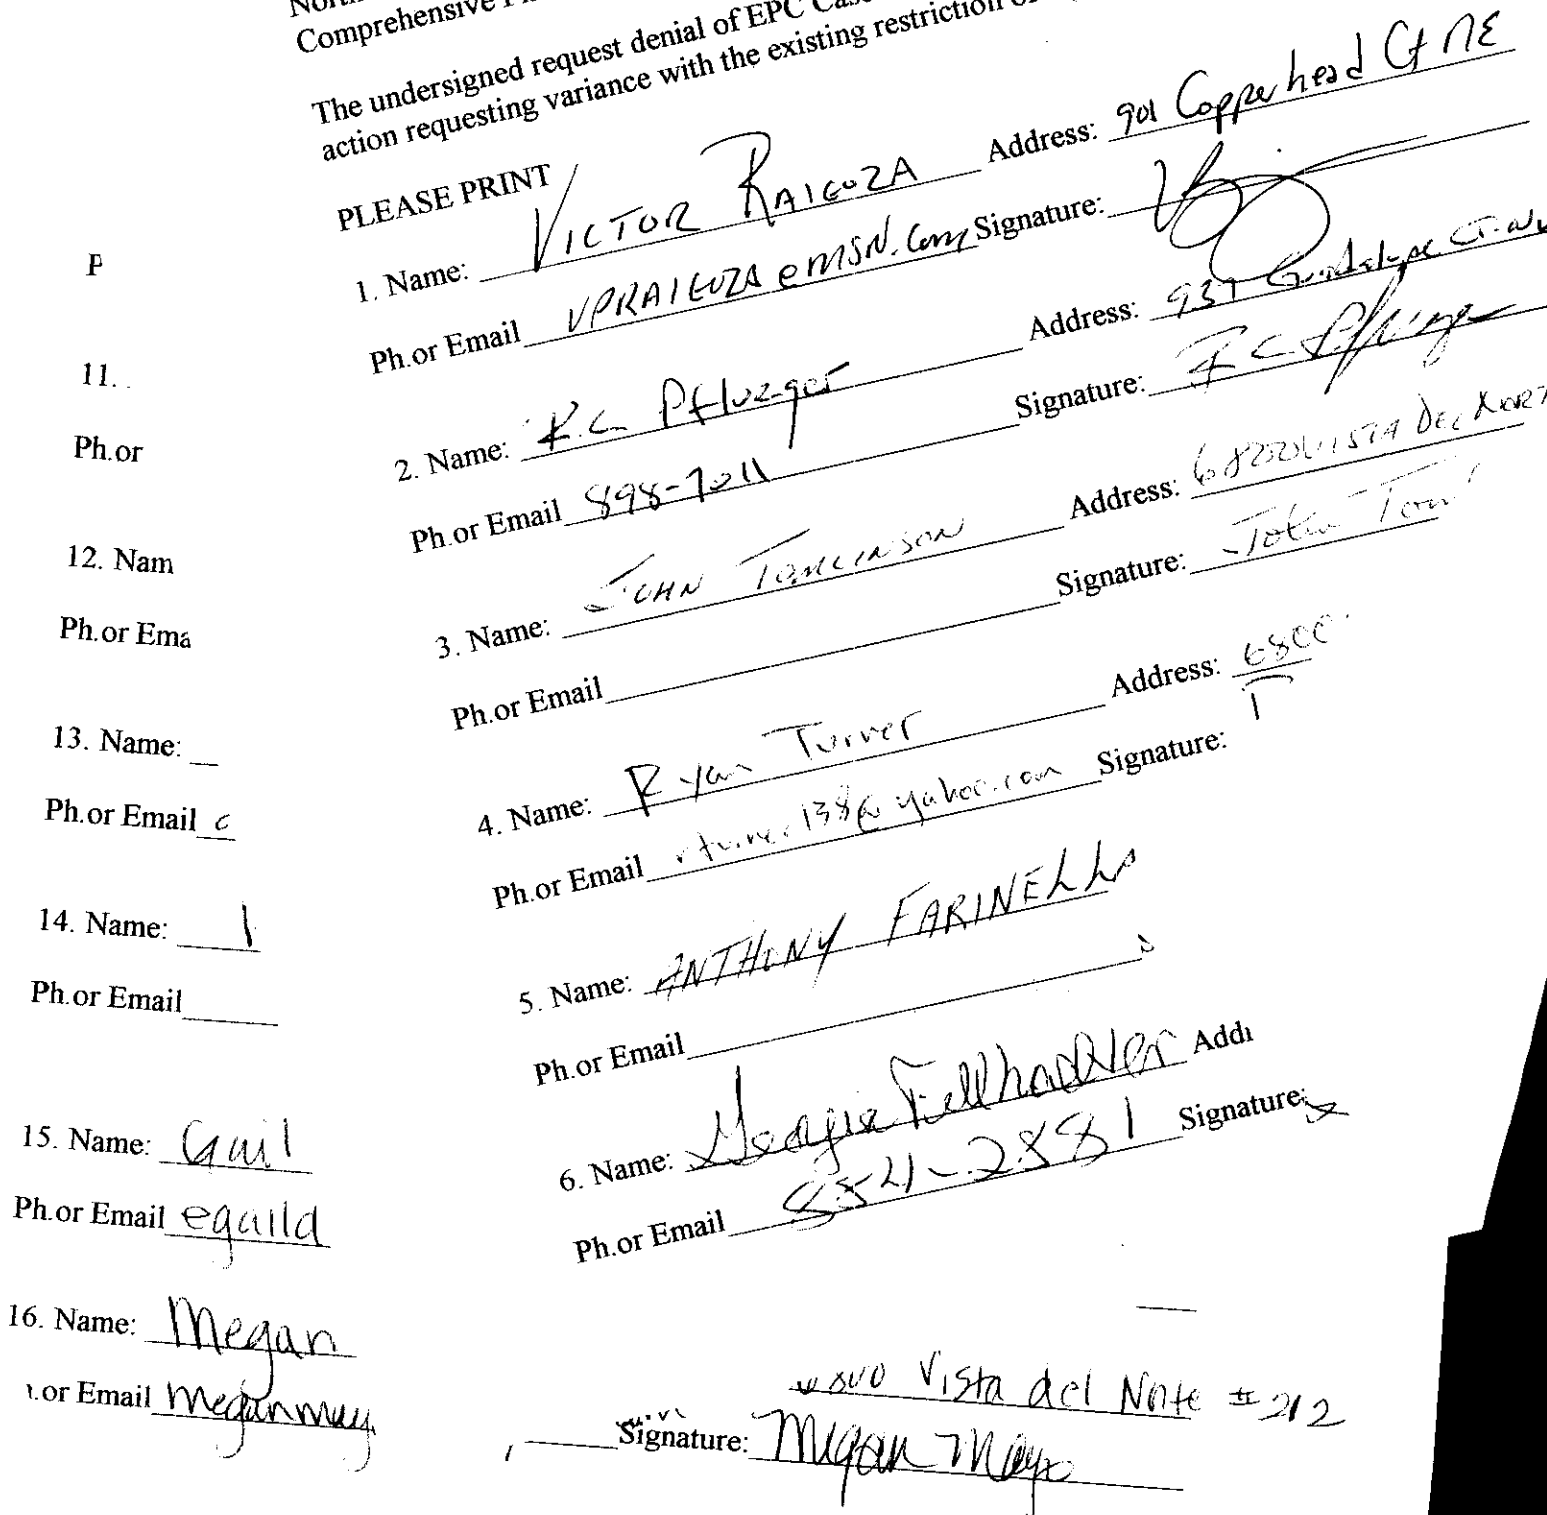 Comprehensive
The undersigned request denial of EPC
action requesting variance with the existing restriction
PLEASE PRINT
1. Name: VICTOR RAIGOZA Address: 901 Copperhead Ct NE
Ph.or Email VPRAIGOZA@MSN.com Signature:
2. Name: R.C. Pfluegor Address: 937 Guadalupe Ct. NW
Ph.or Email 898-7011 Signature:
3. Name: JOHN TOMLINSON Address: 6800 VISTA DEL
Ph.or Email Signature: John
4. Name: Ryan Turner Address: 6800
Ph.or Email rturner138@yahoo.com Signature:
5. Name: ANTHONY FARINELLA
Ph.or Email
6. Name: Georgia Fellhoelter
Ph.or Email 854-2881 Signature:
P
11.
Ph.or
12. Nam
Ph.or Ema
13. Name:
Ph.or Email
14. Name:
Ph.or Email
15. Name: Gail
Ph.or Email egaild
16. Name: Megan
.or Email meganmay
Vista del Norte #212
Signature: Megan Mayo